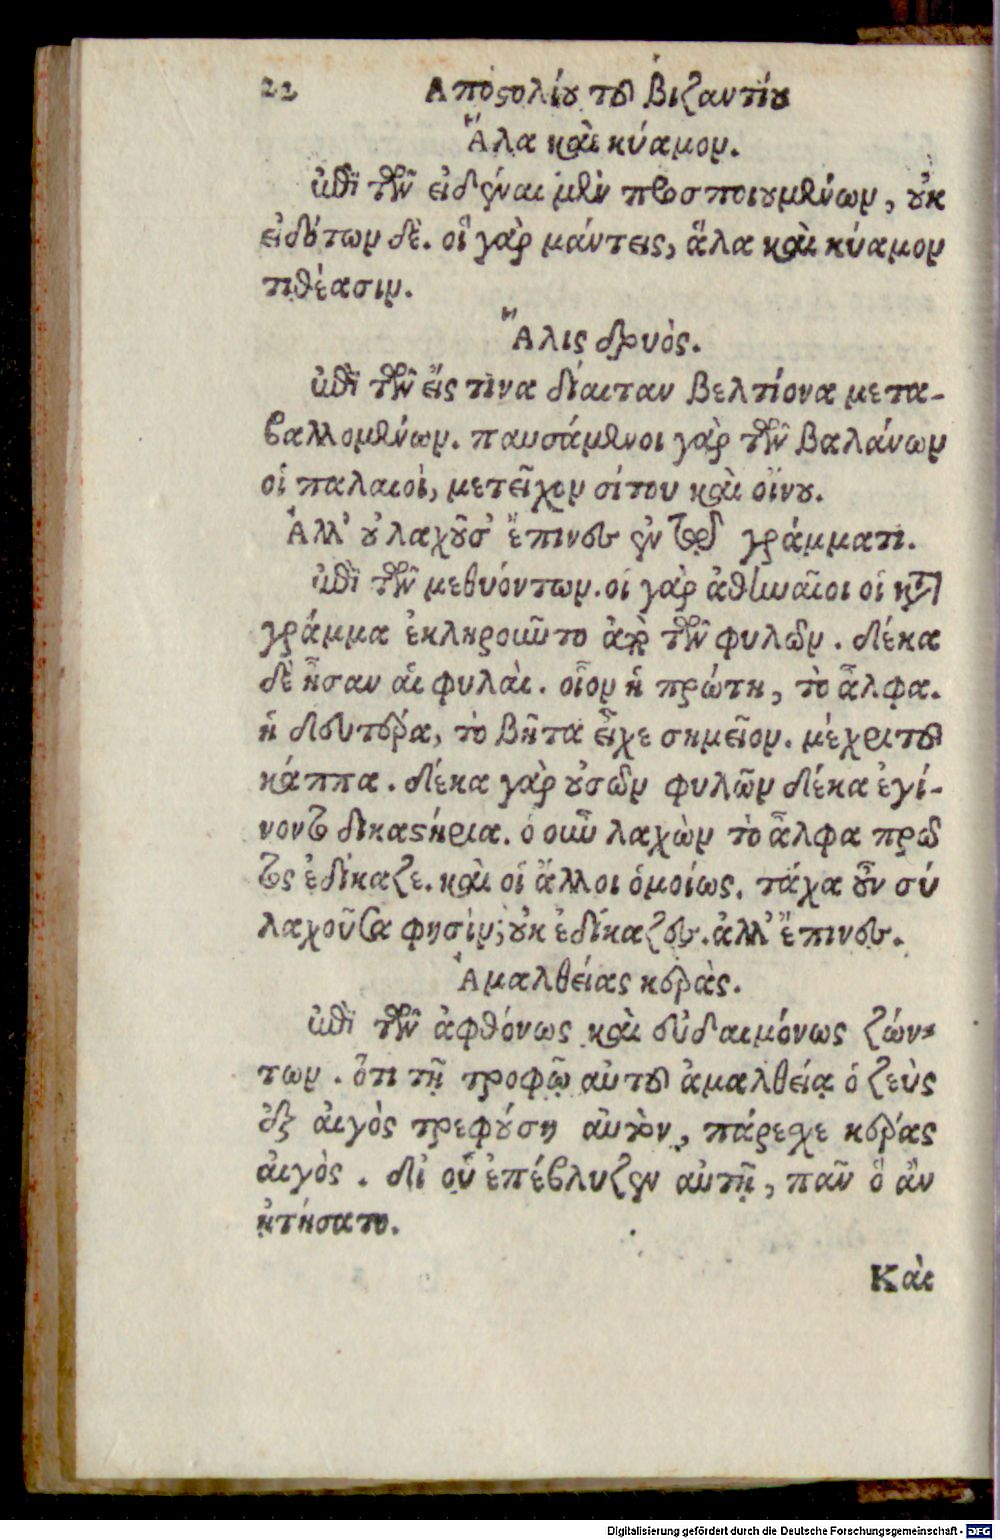 22 Αποστολίου τοῦ Βιζαντίου
Ἅλα καὶ κύαμον.
ἐπὶ τῶν εἰδέναι μὲν προσποιουμένων, οὐκ
εἰδότων δὲ. οἱ γὰρ μάντεις, ἅλα καὶ κύαμον
τιθέασιν.
Ἅλις δρυὸς.
ἐπὶ τῶν εἴς τινα δίαιταν βελτίονα μετα-
βαλλομένων. παυσάμενοι γὰρ τῶν βαλάνων
οἱ παλαιοὶ, μετεῖχον σίτου καὶ οἴνου.
Ἀλλ' οὐ λαχοῦσ' ἔπινεσ ἐν τῷ γράμματι.
ἐπὶ τῶν μεθυόντων. οἱ γὰρ ἀθηναῖοι οἱ κατὰ
γράμμα ἐκληροῦντο ἀπὸ τῶν φυλῶν. δέκα
δὲ ἦσαν αἱ φυλὰι. οἷον ἡ πρώτη, τὸ ἄλφα.
ἡ δευτέρα, τὸ βῆτα εἶχε σημεῖον. μέχρι τοῦ
κάππα. δέκα γὰρ οὐσῶν φυλῶν δέκα ἐγί-
νοντο δικαστήρια. ὁ οὖν λαχὼν τὸ ἄλφα πρῶ
τος ἐδίκαζε. καὶ οἱ ἄλλοι ὁμοίως. τάχα οὖν σύ
λαχοῦσα φησὶν; οὐκ ἐδίκαζες. ἀλλ' ἔπινες.
Ἀμαλθείας κέρας.
ἐπὶ τῶν ἀφθόνως καὶ εὐδαιμόνως ζών-
των. ὅτι τῇ τροφῷ αὐτοῦ ἀμαλθείᾳ ὁ ζεὺς
ἐξ αἰγὸς τρεφούση αὐτὸν, πάρεχε κέρας
αἰγὸς. δι οὗ ἐπέβλυζεν αὐτῇ, πᾶν ὃ ἂν
ᾐτήσατο.
Καὶ
Digitalisierung gefördert durch die Deutsche Forschungsgemeinschaft - DFG